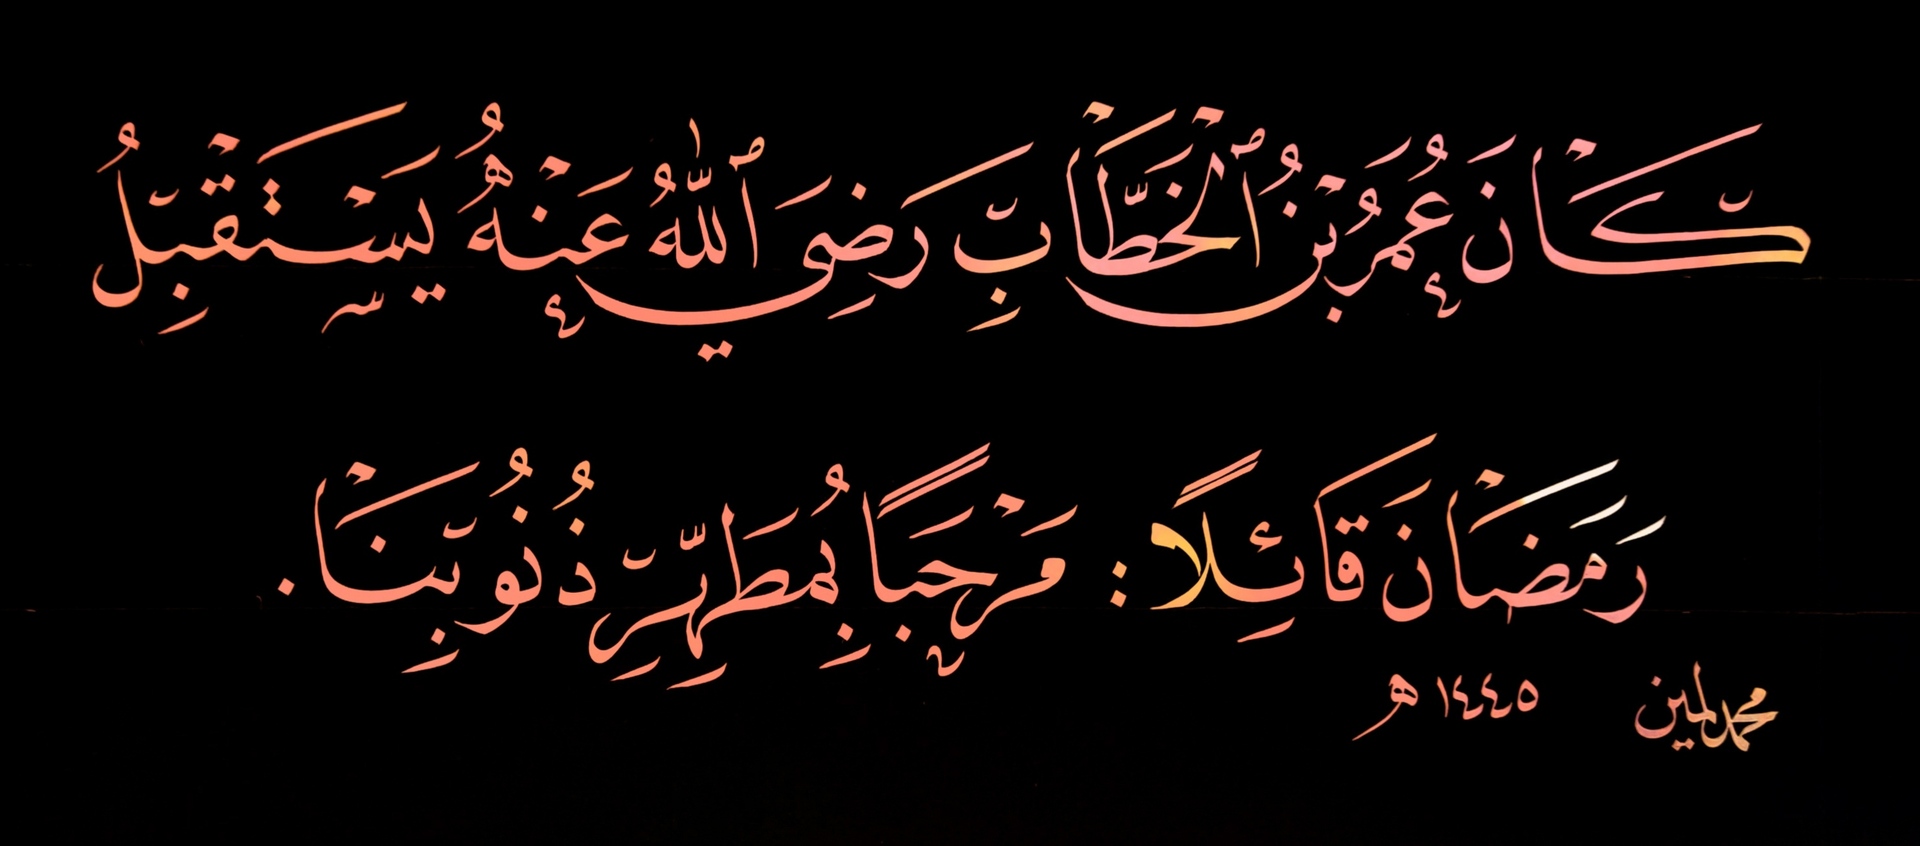 كَانَ عُمَرُ بْنُ ٱلْخَطَّابِ رَضِيَ ٱللَّهُ عَنْهُ يَسْتَقْبِلُ
رَمَضَانَ قَائِلًا: مَرْحَبًا بِمُطَهِّرِ ذُنُوبِنَا.
محمد لمين ١٤٤٥ هـ